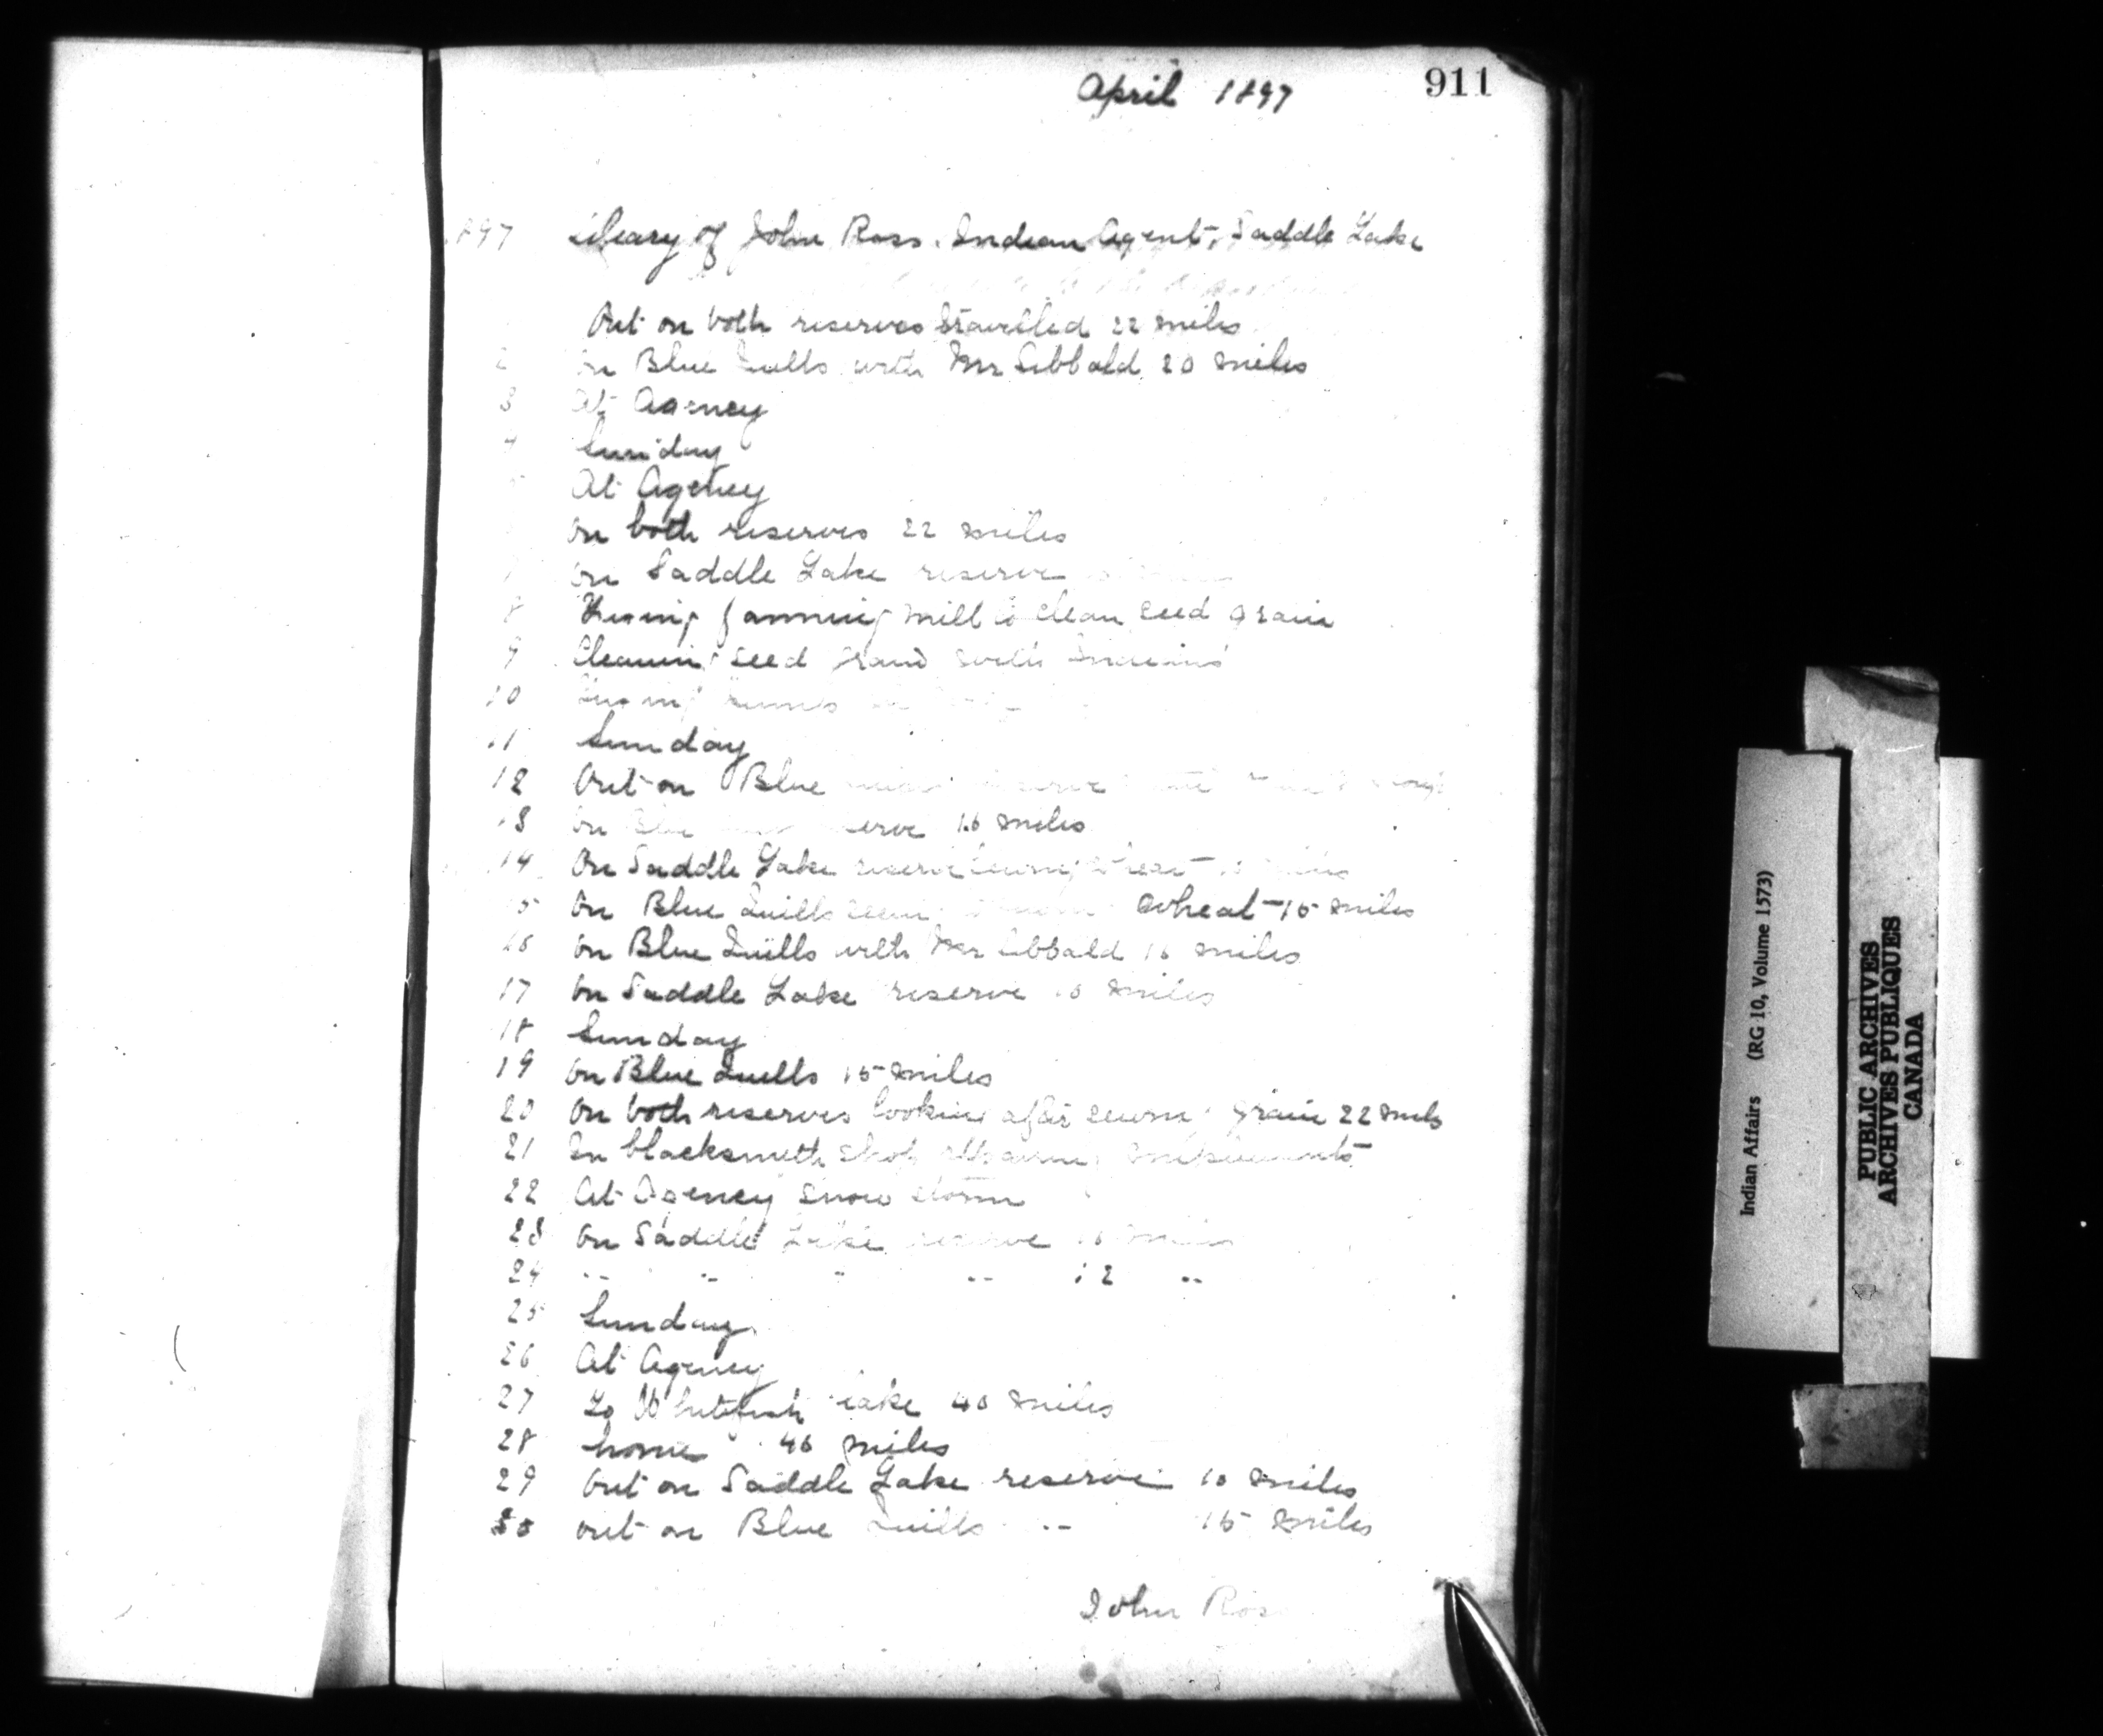 April 1897
911
897 Diary of John Ross. Indian Agent, Saddle Lake
Out on both reserves travelled 22 miles
2 On Blue Quills with Mr Sibbald 20 miles
3 At Agency
4 Sunday
At Agency
On both reserves 22 miles
On Saddle Lake reserve
8 Fixing fanning mill to clean seed grain
9 Cleaning seed grain with Indians
10 Fixing
11 Sunday
12 Out on Blue
13 On Blue 16 miles
14 On Saddle Lake reserve
15 On Blue Quills wheat 15 miles
16 On Blue Quills with Mr Sibbald 16 miles
17 On Saddle Lake reserve miles
18 Sunday
19 On Blue Quills 15 miles
20 On both reserves looking after grain 22 miles
21 In blacksmith shop repairing implements
22 At Agency snow storm
23 On Saddle Lake reserve miles
24 " " " " 12 "
25 Sunday
26 At Agency
27 To Whitefish lake 40 miles
28 home 40 miles
29 Out on Saddle Lake reserve 10 miles
30 out on Blue Quills " 15 miles
John Ross
Indian Affairs (RG 10, Volume 1573)
PUBLIC ARCHIVES
ARCHIVES PUBLIQUES
CANADA